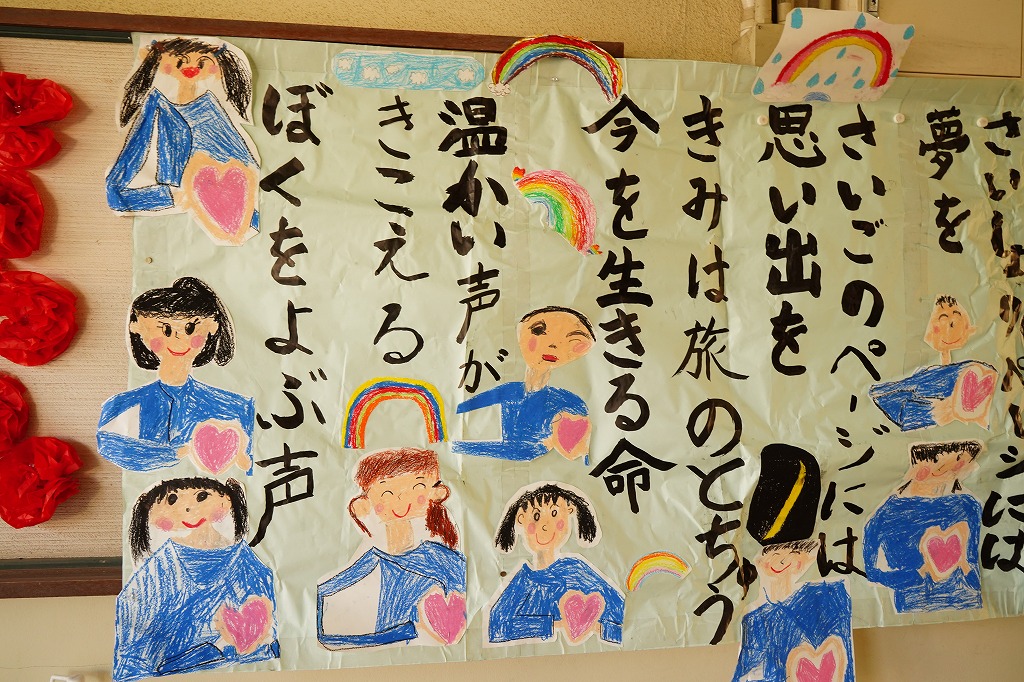 さいしょのページには
夢を
さいごのページには
思い出を
きみは旅のとちゅう
今を生きる命
温かい声が
きこえる
ぼくをよぶ声